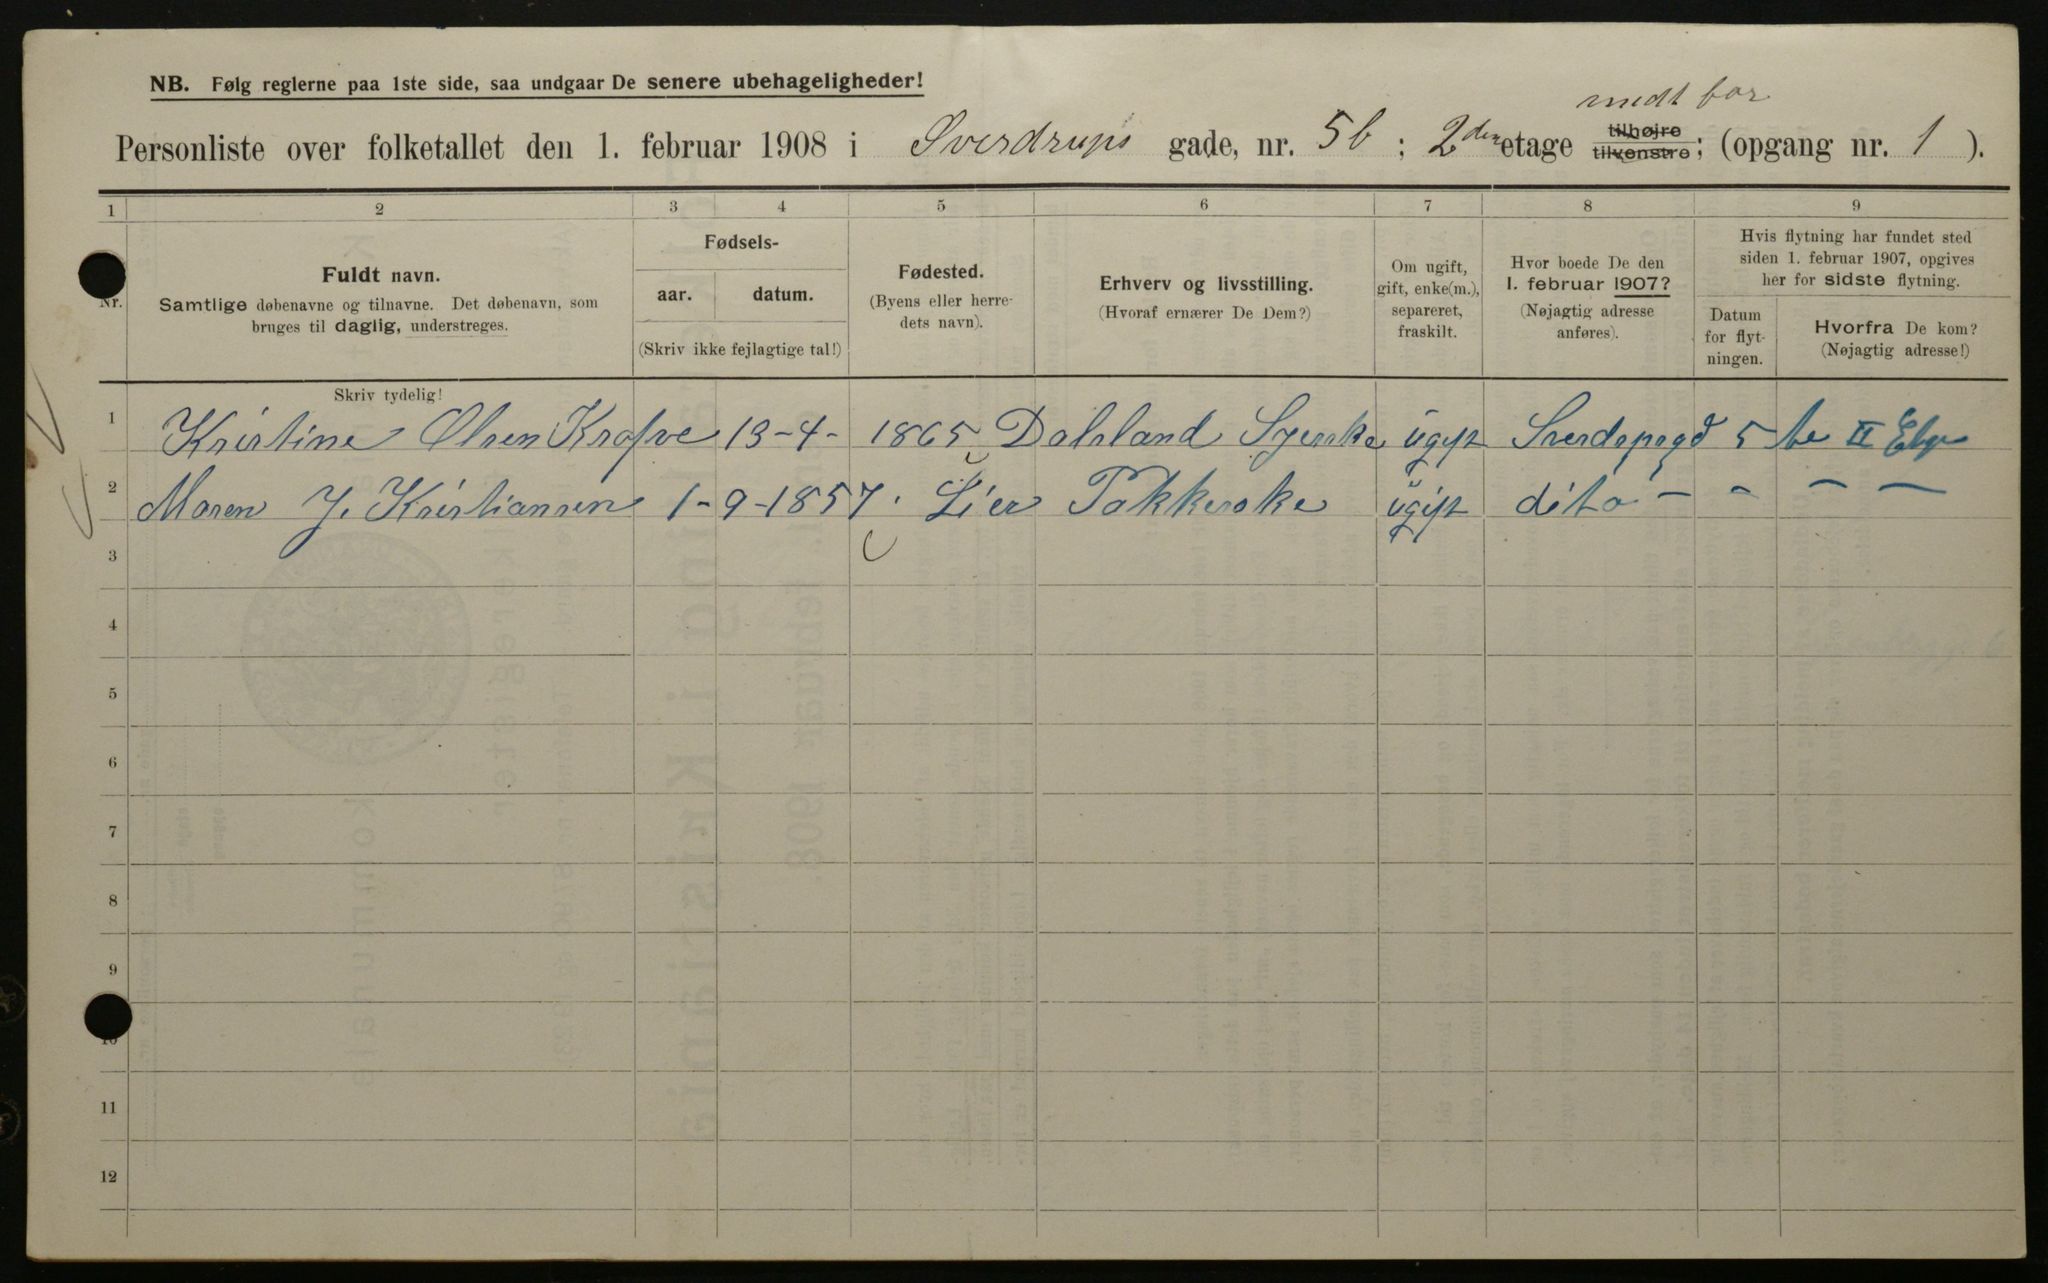 NB. Følg reglerne paa 1ste side, saa undgaar De senere ubehageligheder!
midt for
Personliste over folketallet den 1. februar 1908 i Sverdrups gade, nr. 5b; 2den etage tilhøjre tilvenstre; (opgang nr. 1).
1 2 3 4 5 6 7 8 9
Nr.
Fuldt navn.
Samtlige døbenavne og tilnavne. Det døbenavn, som
bruges til daglig, understreges.
Fødsels-
aar. datum.
(Skriv ikke fejlagtige tal!)
Fødested.
(Byens eller herre-
dets navn).
Erhverv og livsstilling.
(Hvoraf ernærer De Dem?)
Om ugift,
gift, enke(m.),
separeret,
fraskilt.
Hvor boede De den
1. februar 1907?
(Nøjagtig adresse
anføres).
Hvis flytning har fundet sted
siden 1. februar 1907, opgives
her for sidste flytning.
Datum
for flyt-
ningen.
Hvorfra De kom?
(Nøjagtig adresse!)
Skriv tydelig!
1 Kristine Olsen 13-4- 1865 Dalsland Syerske ugift 5 be II
2 Maren J. Kristiansen 1-9-1857. Lier Pakkerske ugift dito - - - -
3
4
5
6
7
8
9
10
11
12